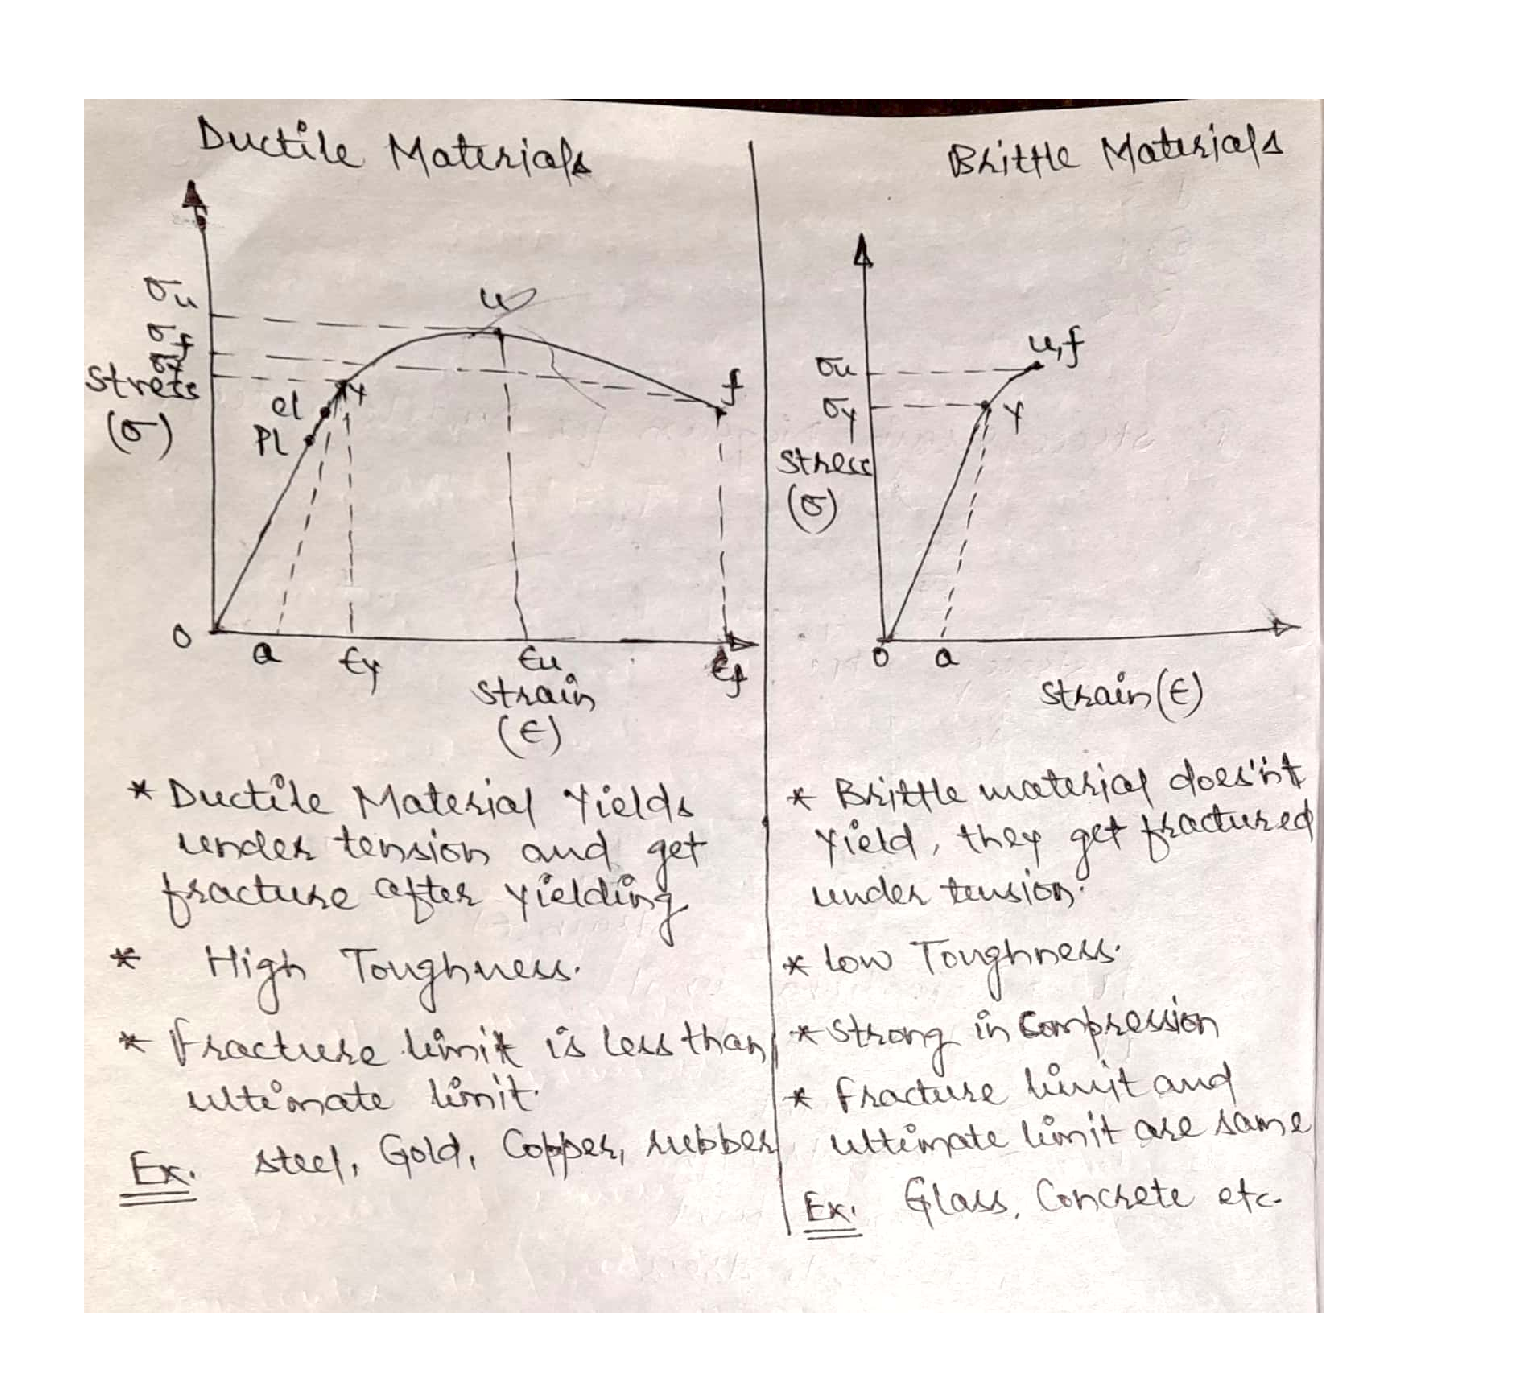 Ductile Materials
σu
σf
σy
Stress
(σ)
u
y
el
PL
f
O
a
εy
εu
εf
Strain
(ε)
* Ductile Material Yields
under tension and get
fracture after yielding
* High Toughness.
* Fracture limit is less than
ultimate limit.
Ex. Steel, Gold, Copper, rubber
Brittle Materials
u,f
σu
σy
y
Stress
(σ)
O
a
Strain (ε)
* Brittle material does'nt
Yield, they get fractured
under tension.
* Low Toughness.
* Strong in Compression
* Fracture limit and
ultimate limit are same
Ex. Glass, Concrete etc.